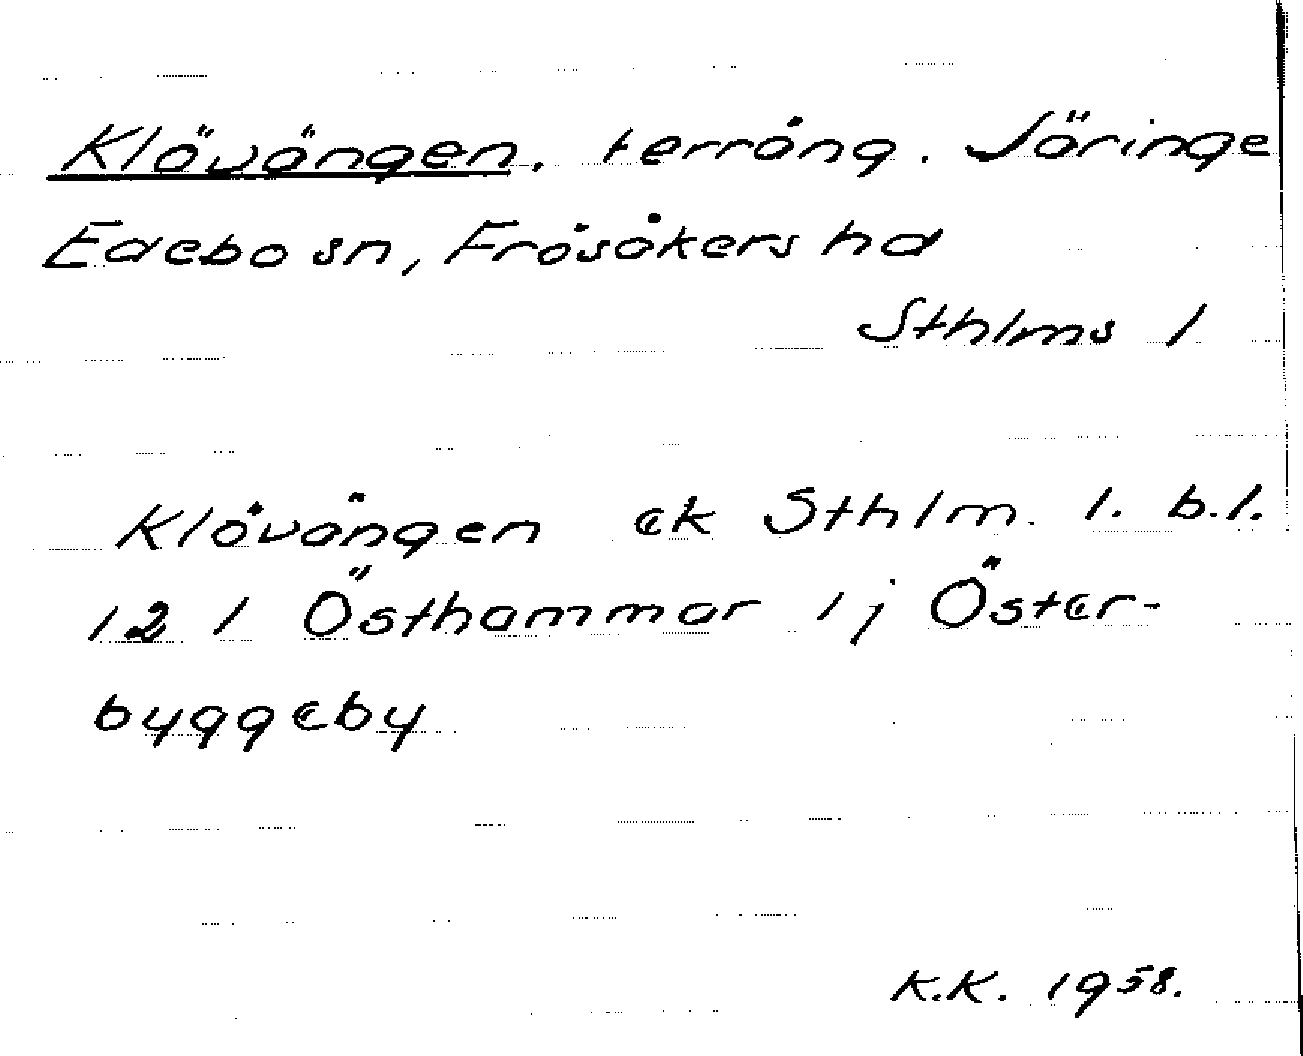 Klövängen, terräng. Säringe
Edebo sn, Frösåkers hd
Sthlms l
Klövängen ek Sthlm. l. b.l.
12 l Östhammar l j Öster-
byggeby
K.K. 1958.